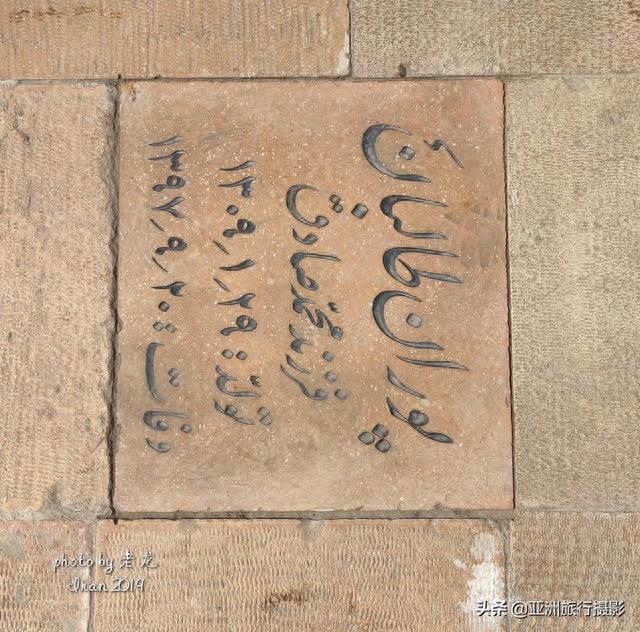 پوران طالبان
فرزند محمد صادق
تولد: ۱۳۰۹٫۱٫۲۹
وفات: ۱۳۹۷٫۹٫۲۰
photo by 老龙
Iran 2019
头条 @亚洲旅行摄影